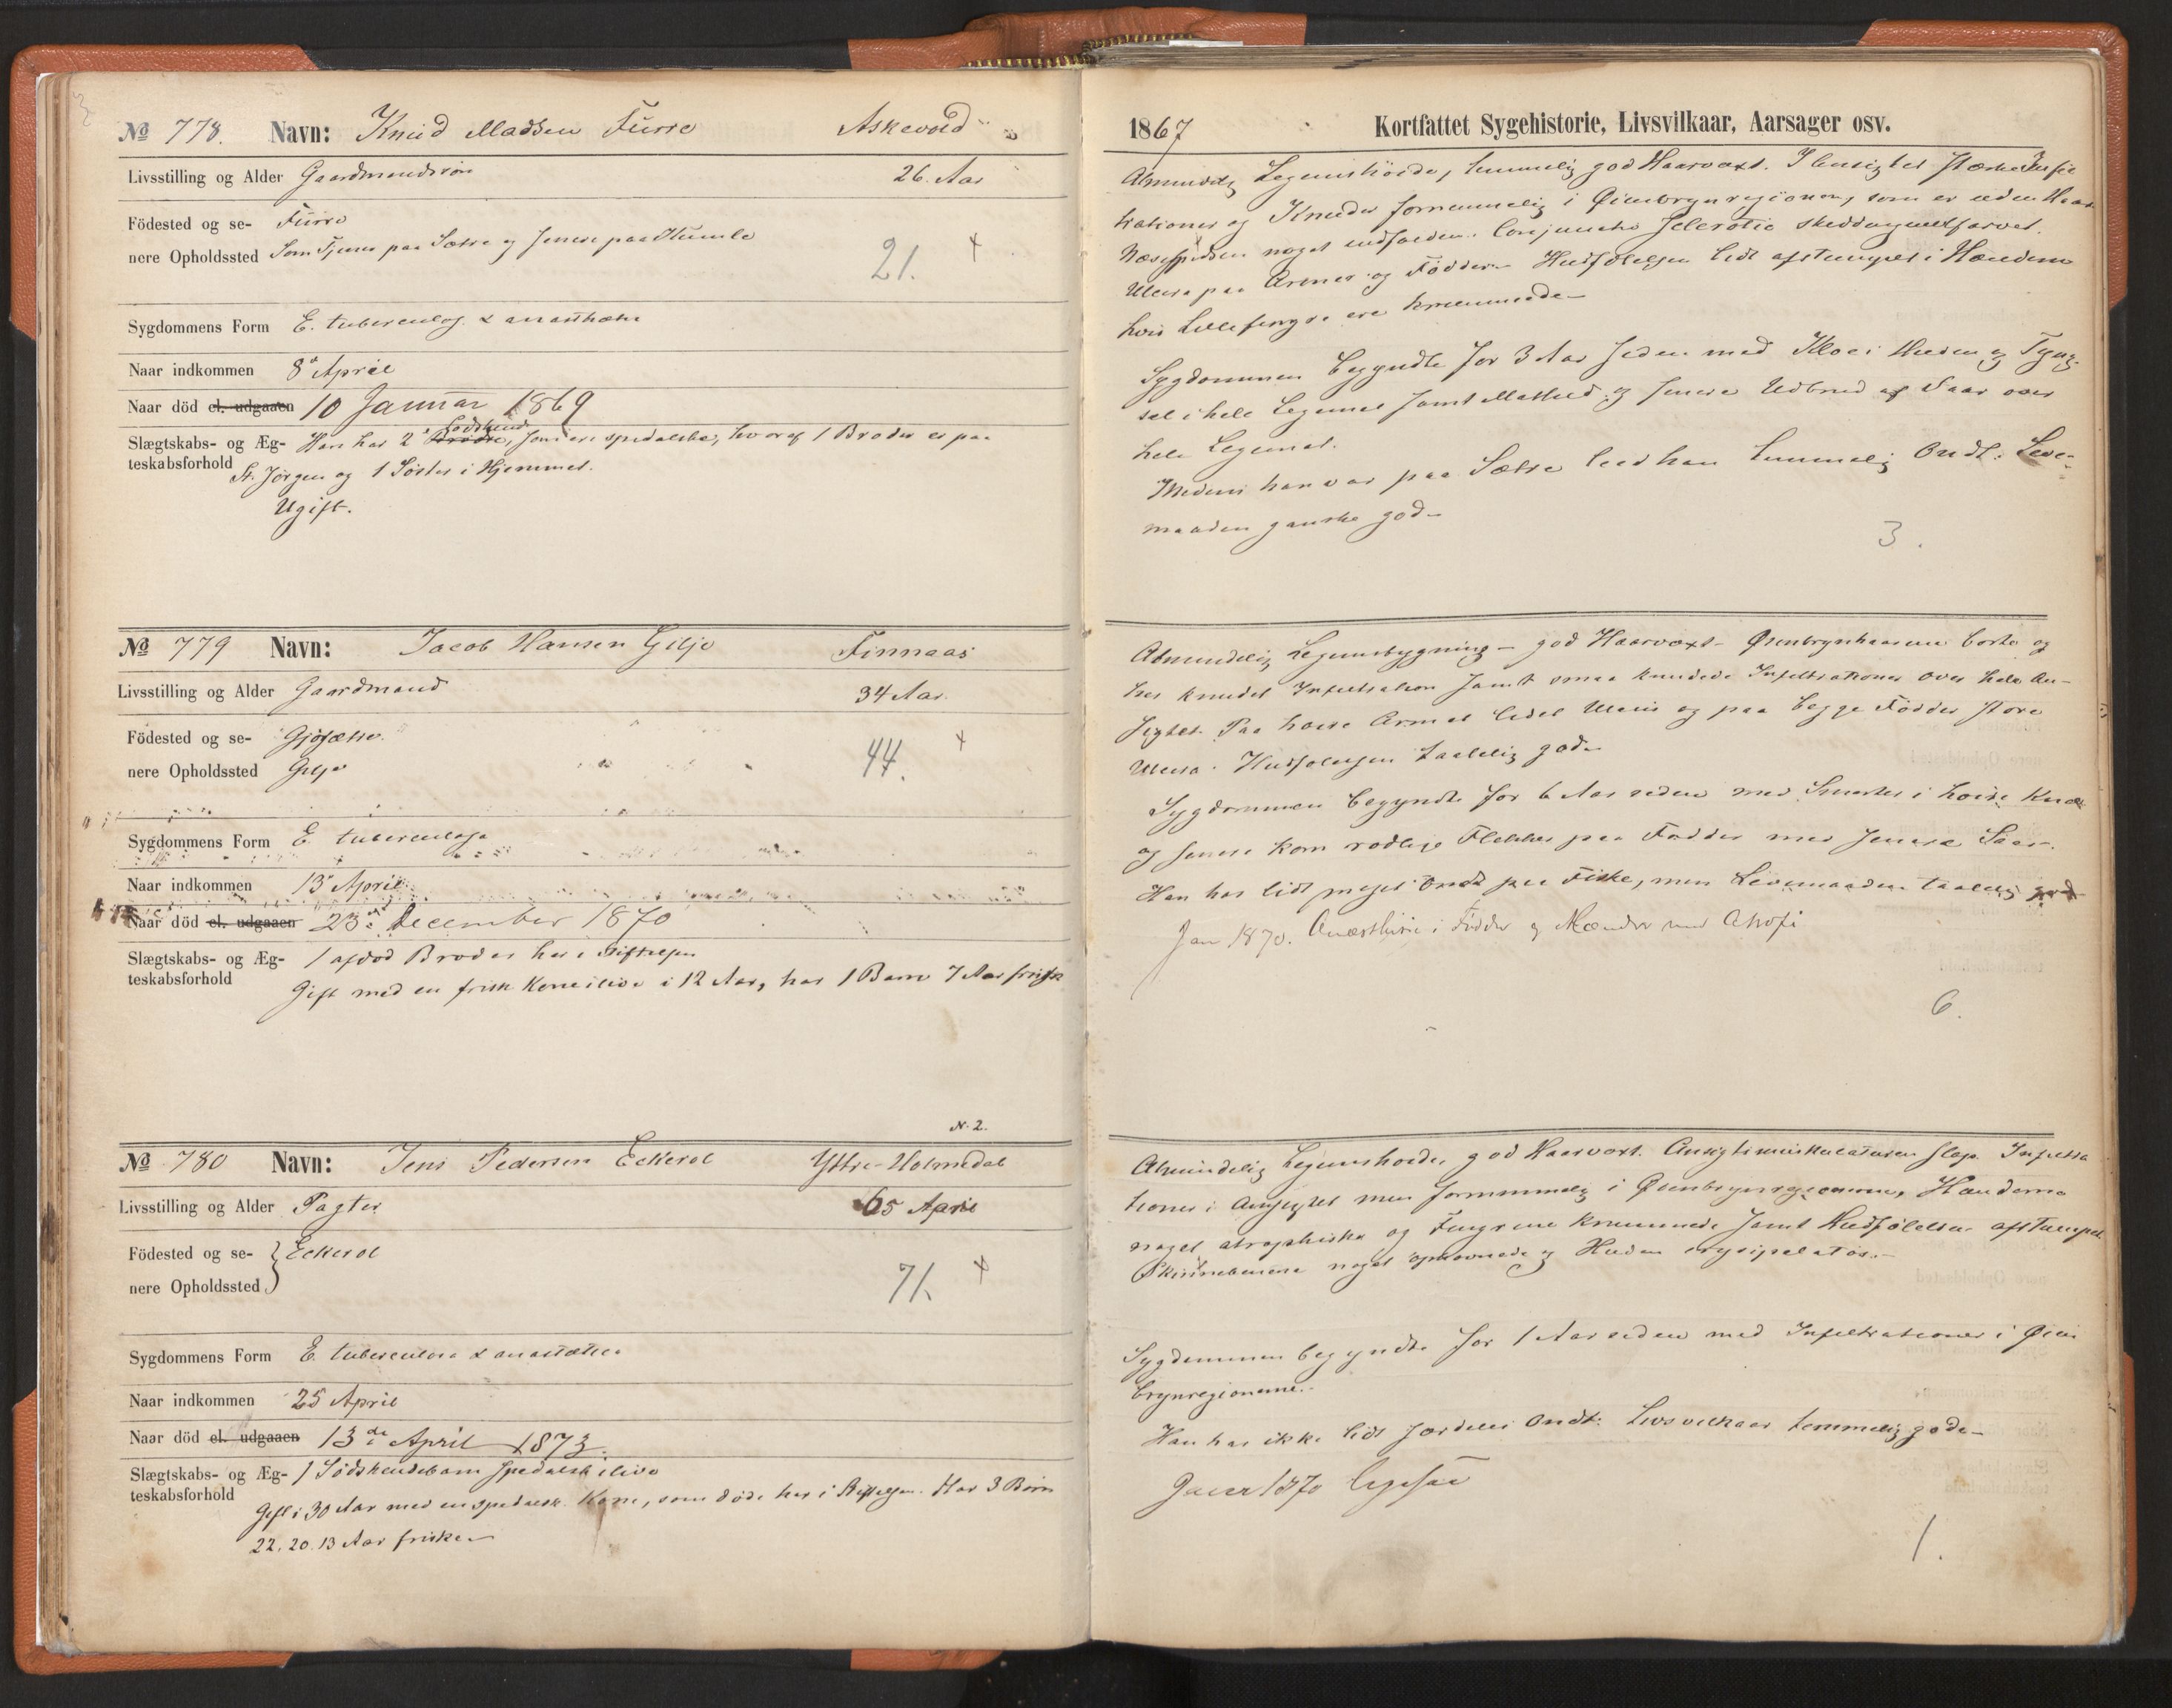 No 778. Navn: Knud Madsen Furre Askevold
Livsstilling og Alder Gaardmandssön 26. Aar
Födested og se- Furre
nere Opholdssted Som Tjener paa Sætre og senere paa Humle
21. +
Sygdommens Form E. tuberculos. & anæsthet.
Naar indkommen 8de April
Naar död el. udgaaen 10 Januar 1869
Södskend
Slægtskabs- og Æg- Han har 2 Brödre, som ere spedalske, hvoraf 1 Broder er paa
teskabsforhold St. Jörgen og 1 Söster i Hjemmet.
Ugift.
No 779 Navn: Jacob Hansen Gilje Finnaas
Livsstilling og Alder Gaardmand 34 Aar.
Födested og se- Gjøsætre.
nere Opholdssted Gilje
44. +
Sygdommens Form E. tuberculosa
Naar indkommen 13de April
Naar död el. udgaaen 23de December 1870
Slægtskabs- og Æg- 1 afdöd Broder her i Stiftelsen
teskabsforhold Gift med en frisk Kone ilive i 12 Aar, har 1 Barn 7 Aar frisk
N. 2.
No 780 Navn: Jens Pedersen Eckerol Yttre-Holmedal
Livsstilling og Alder Pagter 65 April
Födested og se- Eckerol
nere Opholdssted
71. +
Sygdommens Form E. tuberculosa & anæsthetica
Naar indkommen 25 April
Naar död el. udgaaen 13de April 1873.
Slægtskabs- og Æg- 1 Södskendebarn spedalsk ilive
teskabsforhold Gift i 30 Aar med en spedalsk Kone, som döde her i Stiftelsen. Har 3 Börn
22. 20. 13 Aar friske
1867 Kortfattet Sygehistorie, Livsvilkaar, Aarsager osv.
Almindelig Legemshöide, temmelig god Haarvæxt. I Ansigtet stærke Infil
trationer og Knuder fornemmelig i Öienbrynregionen, som er uden Haar
Næsespidsen noget indfalden. Conjunctiva Sclerotic skiddengulfarvet.
Ulcera paa Armer og Födder. Hudfölelsen lidt afstumpet i Hænderne
hvis Lillefingre ere krummede
Sygdommen begyndte for 3 Aar siden med Klöe i Huden og Tyng
sel i hele Legemet samt Mathed og senere Udbrud af Saar over
hele Legemet.
Medens han var paa Sætre leed han temmelig Ondt. Leve-
maaden ganske god
3.
Almindelig Legemsbygning - god Haarvæxt - Öienbrynhaarene borte og
her knudet Infiltration samt smaa knudede Infiltrationer over hele An-
sigtet. Paa höire Armen lidet Ulcus og paa begge Födder store
Ulcera. Hudfölelsen taalelig god.
Sygdommen begyndte for 6 Aar siden med Smerter i höire Knæ
og senere kom rödlige Flekker paa Födder med senere Saar.
Han har lidt meget Ondt paa Fiske, men Levemaaden taalelig god
Jan 1870. Anæsthesie i Födder og Hænder med Atrofi
6.
Almindelig Legemshöide, god Haarvæxt. Ansigtsmuskulaturen slap. Infiltra
tioner i Ansigtet men fornemmelig i Öienbrynregionerne, Hænderne
noget atrophiske og Fingrene krummede samt Hudfölelsen afstumpet
Skinnebenene noget opsvovnede og Huden erysipelatös.
Sygdommen begyndte for 1 Aar siden med Infiltrationer i Öien
brynregionerne.
Han har ikke lidt særdeles Ondt. Livsvilkaar temmelig gode
1870
1.